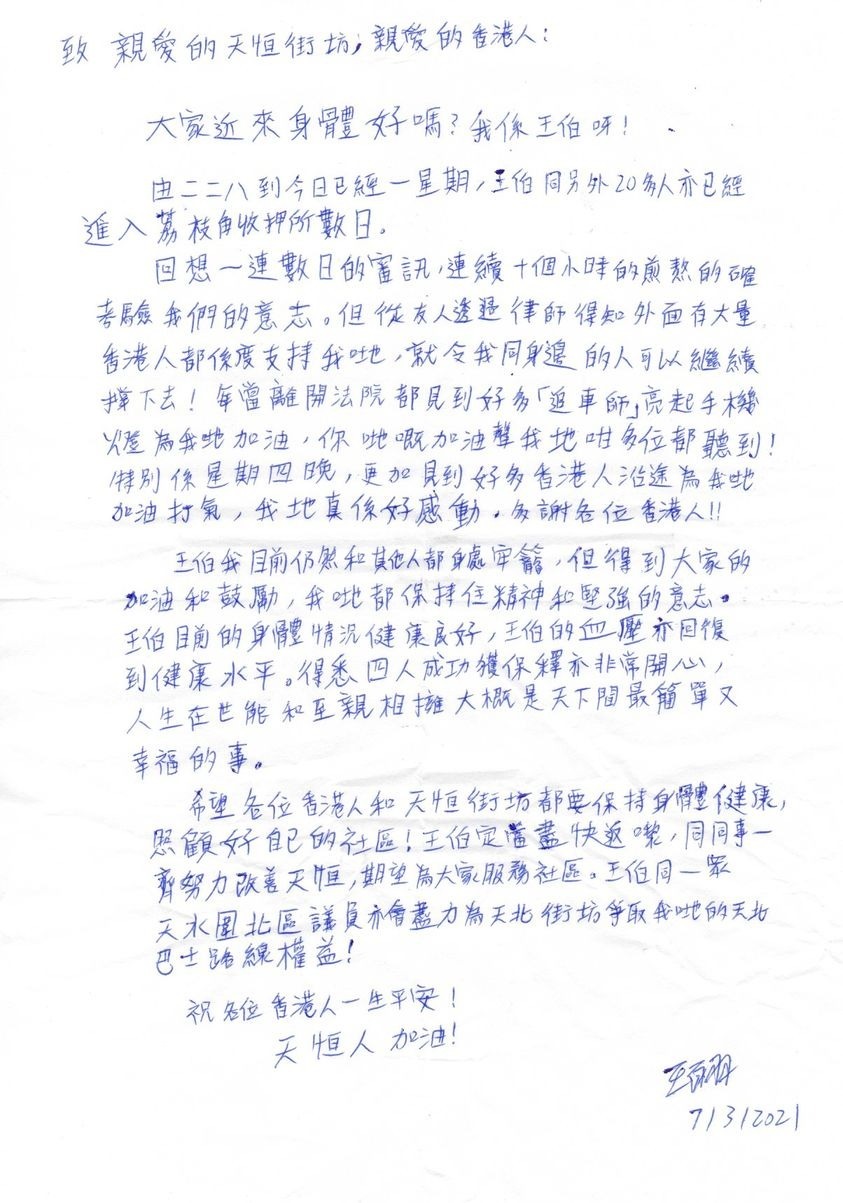 致 親愛的天恒街坊，親愛的香港人：
大家近來身體好嗎？我係王伯呀！
由二二八到今日已經一星期，王伯同另外20多人亦已經
進入荔枝角收押所數日。
回想一連數日的審訊，連續十個小時的煎熬的確
考驗我們的意志。但從友人透過律師得知外面有大量
香港人都係度支持我哋，就令我同身邊的人可以繼續
撐下去！每當離開法院都見到好多「追車師」亮起手機
燈為我哋加油，你哋嘅加油聲我地咁多位都聽到！
特別係星期四晚，更加見到好多香港人沿途為我哋
加油打氣，我地真係好感動。多謝各位香港人!!
王伯我目前仍然和其他人都身處牢籠，但得到大家的
加油和鼓勵，我哋都保持住精神和堅強的意志。
王伯目前的身體情況健康良好，王伯的血壓亦回復
到健康水平。得悉四人成功獲保釋亦非常開心，
人生在世能和至親相擁大概是天下間最簡單又
幸福的事。
希望各位香港人和天恒街坊都要保持身體健康，
照顧好自己的社區！王伯定當盡快返嚟，同同事一
齊努力改善天恒，期望為大家服務社區。王伯同一眾
天水圍北區議員亦會盡力為天北街坊爭取我哋的天北
巴士路線權益！
祝各位香港人一生平安！
天恒人加油！
王百羽
7/3/2021